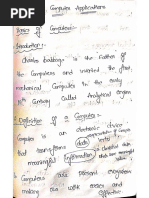 Computer Applications
Basics of Computers:-
Introduction:-
Charles babbage is the Father of
the Computers and invented the first
mechanical Computer in the early
19th Century Called Analytical engine
Definition of a Computer:-
Computer is an electronic device
that transforms data
meaningful Information
Computers are
making the work easier and